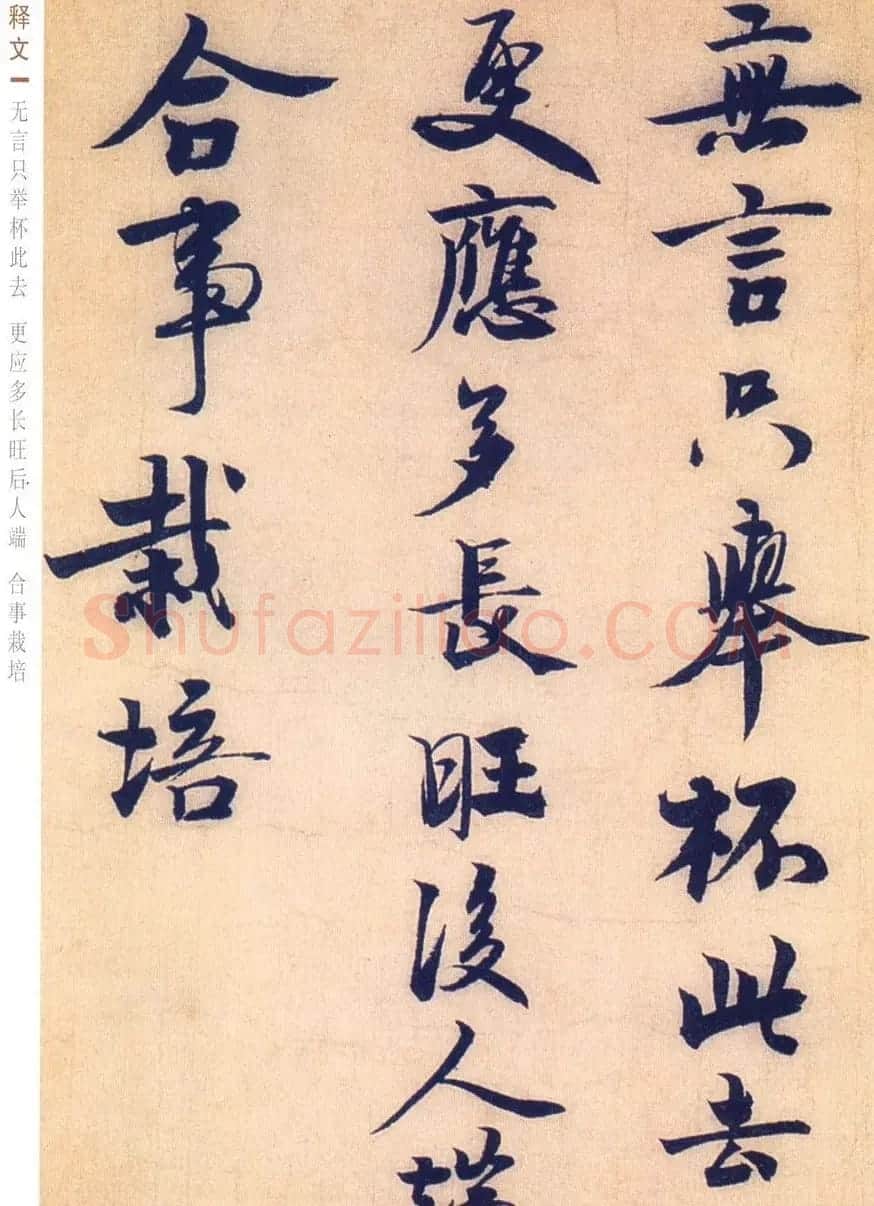 無言只舉杯此去
更應多長旺後人端
合事栽培
释文
无言只举杯此去 更应多长旺后人端 合事栽培
Shufaziliao.COM